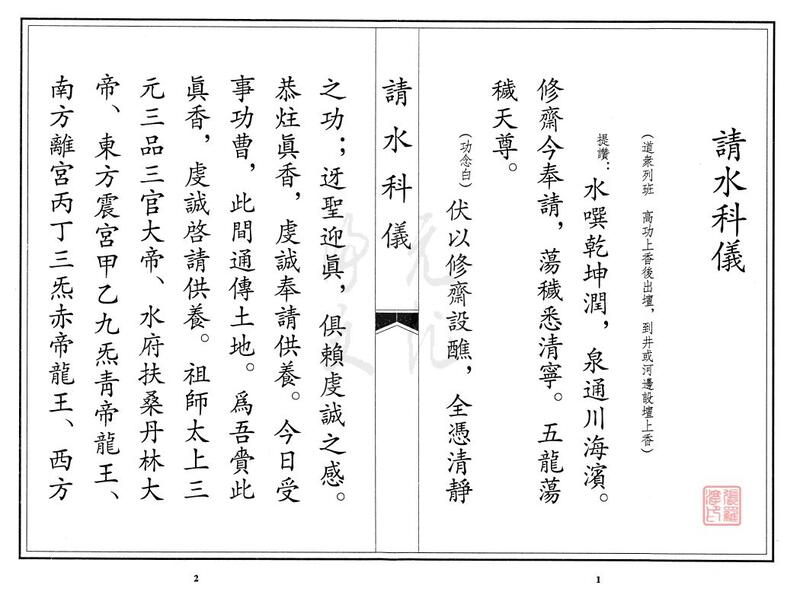 請水科儀
（道衆列班　高功上香後出壇，到井或河邊設壇上香）
提讚：水噀乾坤潤，泉通川海濱。
修齋今奉請，蕩穢悉清寧。五龍蕩
穢天尊。
（功念白）伏以修齋設醮，全憑清靜
請水科儀
之功；迓聖迎眞，俱賴虔誠之感。
恭炷眞香，虔誠奉請供養。今日受
事功曹，此間通傳土地。爲吾賫此
眞香，虔誠啓請供養。祖師太上三
元三品三官大帝、水府扶桑丹林大
帝、東方震宮甲乙九炁青帝龍王、
南方離宮丙丁三炁赤帝龍王、西方
1
2